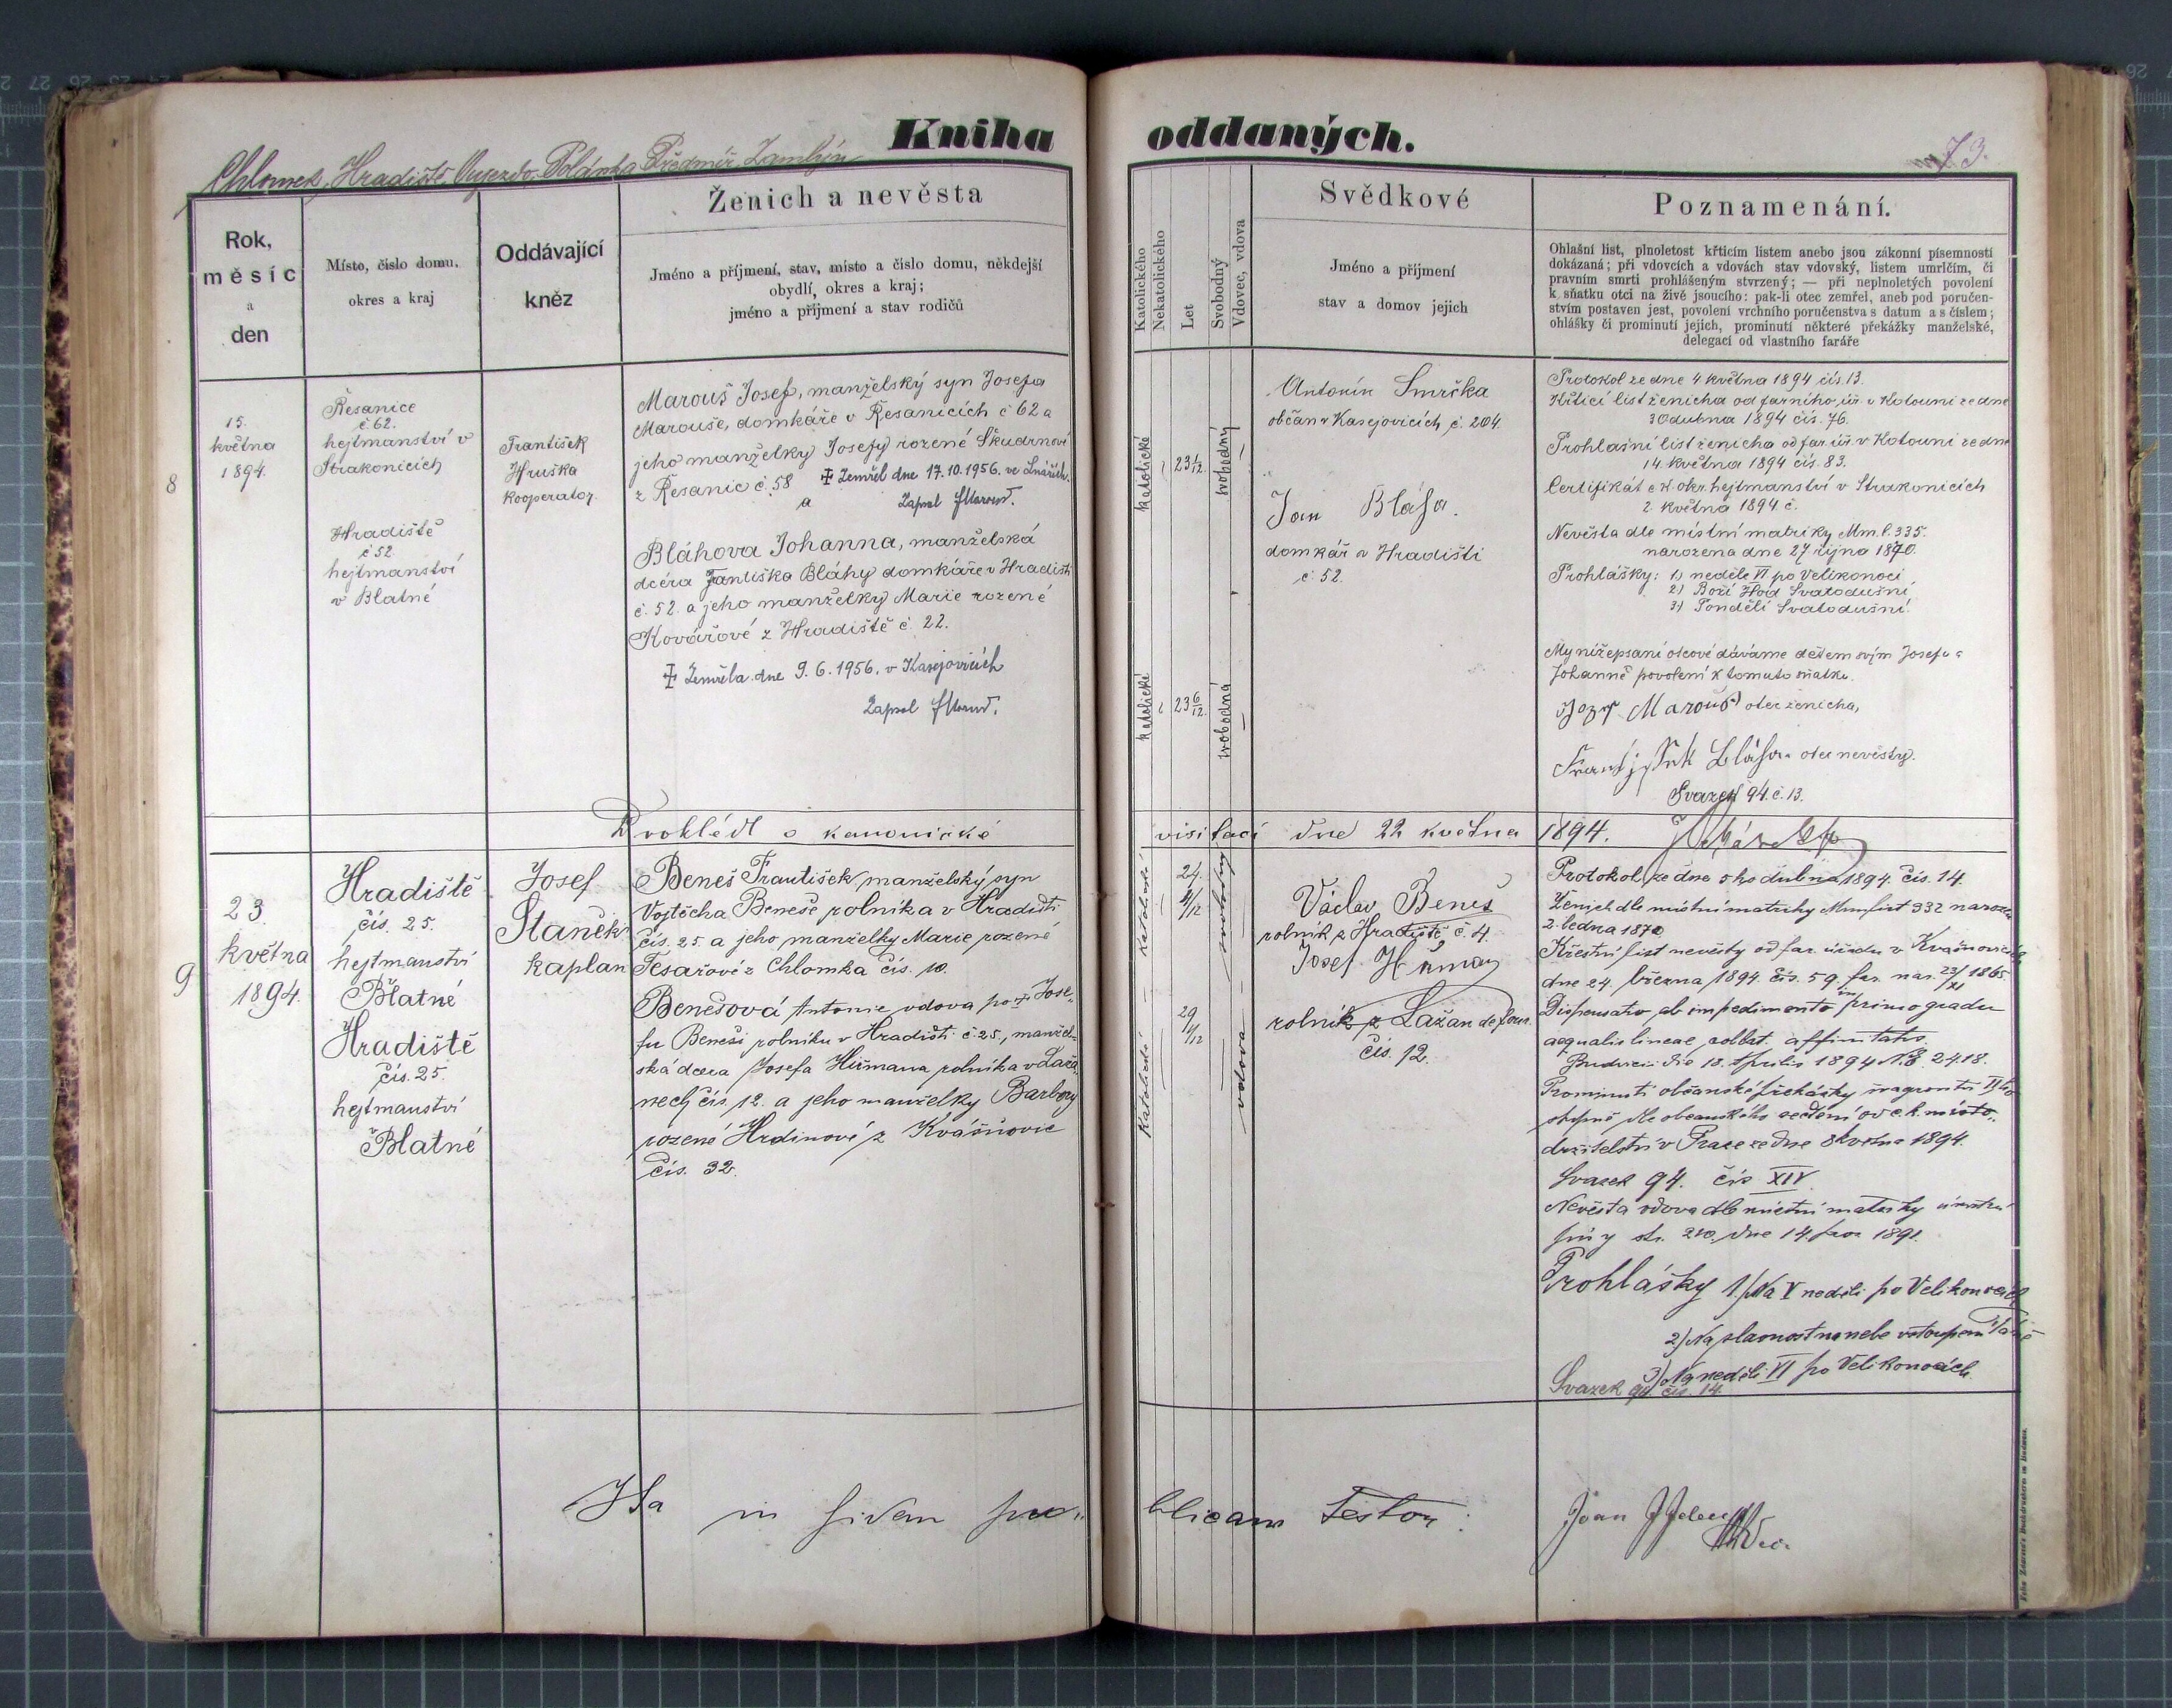 Kniha oddaných.
Chlomek, Hradiště, Oujezdo, Polánka, Předmíř, Zamlýn
73.
Rok,
měsíc
a
den
Místo, číslo domu,
okres a kraj
Oddávající
kněz
Ženich a nevěsta
Jméno a příjmení, stav, místo a číslo domu, někdejší
obydlí, okres a kraj;
jméno a příjmení a stav rodičů
Katolického
Nekatolického
Let
Svobodný
Vdovec, vdova
Svědkové
Jméno a přijmení
stav a domov jejich
Poznamenání.
Ohlašní list, plnoletost křticím listem anebo jsou zákonní písemností
dokázaná; při vdovcích a vdovách stav vdovský, listem umrlčím, či
pravním smrti prohlášeným stvrzený; — při neplnoletých povolení
k sňatku otci na živě jsoucího: pak-li otec zemřel, aneb pod poručen-
stvím postaven jest, povolení vrchního poručenstva s datum a s číslem;
ohlášky či prominutí jejich, prominutí některé překážky manželské,
delegací od vlastního faráře
8
15.
května
1894.
Řesanice
č 62.
hejtmanství v
Strakonicích
Hradiště
č 52
hejtmanství
v Blatné
František
Hruška
kooperator
Marouš Josef, manželský syn Josefa
Marouše, domkáře v Řesanicích č 62 a
jeho manželky Josefy rozené Škudrnovi
z Řesanic č. 58 ‡ Zemřel dne 17.10.1956. ve Lnářích.
a Zapsal
Bláhova Johanna, manželská
dcéra Františka Bláhy domkáře v Hradišti
č. 52. a jeho manželky Marie rozené
Kovářové z Hradiště č. 22.
‡ Zemřela dne 9.6.1956. v Kasejovicích
Zapsal
katolické
23 1/12.
svobodný
katolické
23 6/12.
svobodná
Antonín Smrčka
občan v Kasejovicích č. 204.
Jan Bláha.
domkář v Hradišti
č. 52.
Protokol ze dne 4 května 1894 čís. 13.
Křticí list ženicha od farního úř. v Kotouni ze dne
30 dubna 1894 čís. 76.
Prohlašní list ženicha od far. úř. v Kotouni ze dne
14. května 1894 čís. 83.
Certifikát c. k. okr. hejtmanství v Strakonicích
2. května 1894 č.
Nevěsta dle místní matriky Mm. l. 335.
narozena dne 27 října 1870.
Prohlášky: 1) neděle VI. po Velikonoci
2) Boží Hod Svatodušní
3) Pondělí Svatodušní.
My nížepsaní otcové dáváme dětem svým Josefu a
Johanně povolení k tomuto sňatku.
Jozef Marouš otec ženicha,
Frantjssek Bláha otec nevěsty.
Svazek 94. č. 13.
Prohlédl o kanonické visitaci dne 22 května 1894.
9
23.
května
1894.
Hradiště
čís. 25.
hejtmanství
Blatné
Hradiště
čís. 25.
hejtmanství
Blatné
Josef
Staněk
kaplan
Beneš František, manželský syn
Vojtěcha Beneše rolníka v Hradišti
čís. 25. a jeho manželky Marie rozené
Tesařové z Chlomka čís. 10.
Benešová Antonie vdova po ‡ Jose-
fu Beneši rolníku v Hradišti č. 25., manžel-
ská dcera Josefa Hůrmana rolníka v Laža-
nech čís. 12. a jeho manželky Barbory
rozené Hrdinové z Kvášňovic
čís. 32.
katolické
24.
4/12
svobodný
katolické
29
vdova
Václav Beneš
rolník z Hradiště č. 4.
Josef
rolník z Lažan
čís. 12.
Protokol ze dne 5ho dubna 1894. čís. 14.
Ženich dle místní matriky Mm list 332 narozen
2. ledna 1870
Křestní list nevěsty od far. úřadu v Kvášňovicích
dne 24. března 1894. čís. 59 far. nar. 23/XI 1865.
Dispensatio ab impedimento in primo gradu
aequalis lineae collat. affinitatis
die 18. Aprilis 1894 N. E. 2418.
Prominutí občanské překážky švagrovství II ho
stupně dle občanského sečtění od c. k. místo-
držitelství v Praze ze dne 8 května 1894.
Svazek 94. čís XIV
Nevěsta vdova dle místní matriky
str. 210. dne 14. 1891.
Prohlášky 1./ Na V neděli po Velikonocích
2.) Na slavnost na nebe vstoupení Páně
3) Na neděli VI po Velikonocích
Svazek 94 čís. 14.
Ita in fidem publicam testor:
Joan